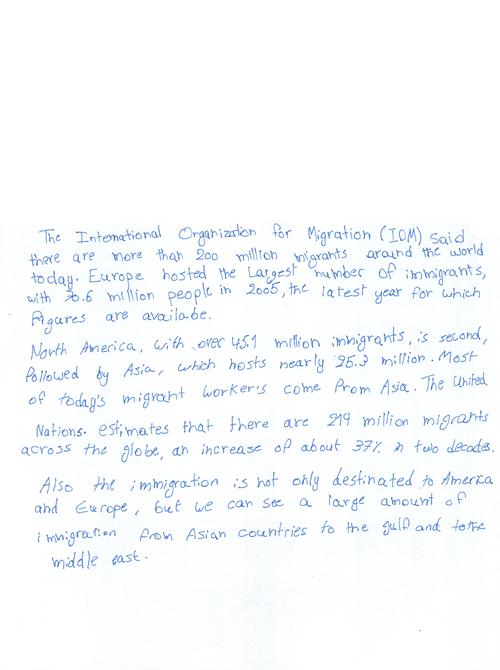 The International Organization for Migration (IOM) said
there are more than 200 million migrants around the world
today. Europe hosted the Largest number of immigrants,
with 70.6 million people in 2005, the latest year for which
Figures are availabe.
North America, with over 45.1 million immigrants, is second,
Followed by Asia, which hosts nearly 25.3 million. Most
of today's migrant workers come From Asia. The United
Nations. estimates that there are 214 million migrants
across the globe, an increase of about 37% in two decades.
Also the immigration is not only destinated to America
and Europe, but we can see a large amount of
immigration from Asian countries to the gulf and to the
middle east.